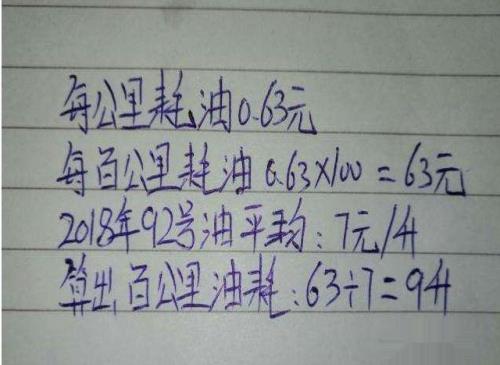 每公里耗油0.63元
每百公里耗油0.63×100=63元
2018年92号油平均:7元/升
算出百公里油耗:63÷7=9升